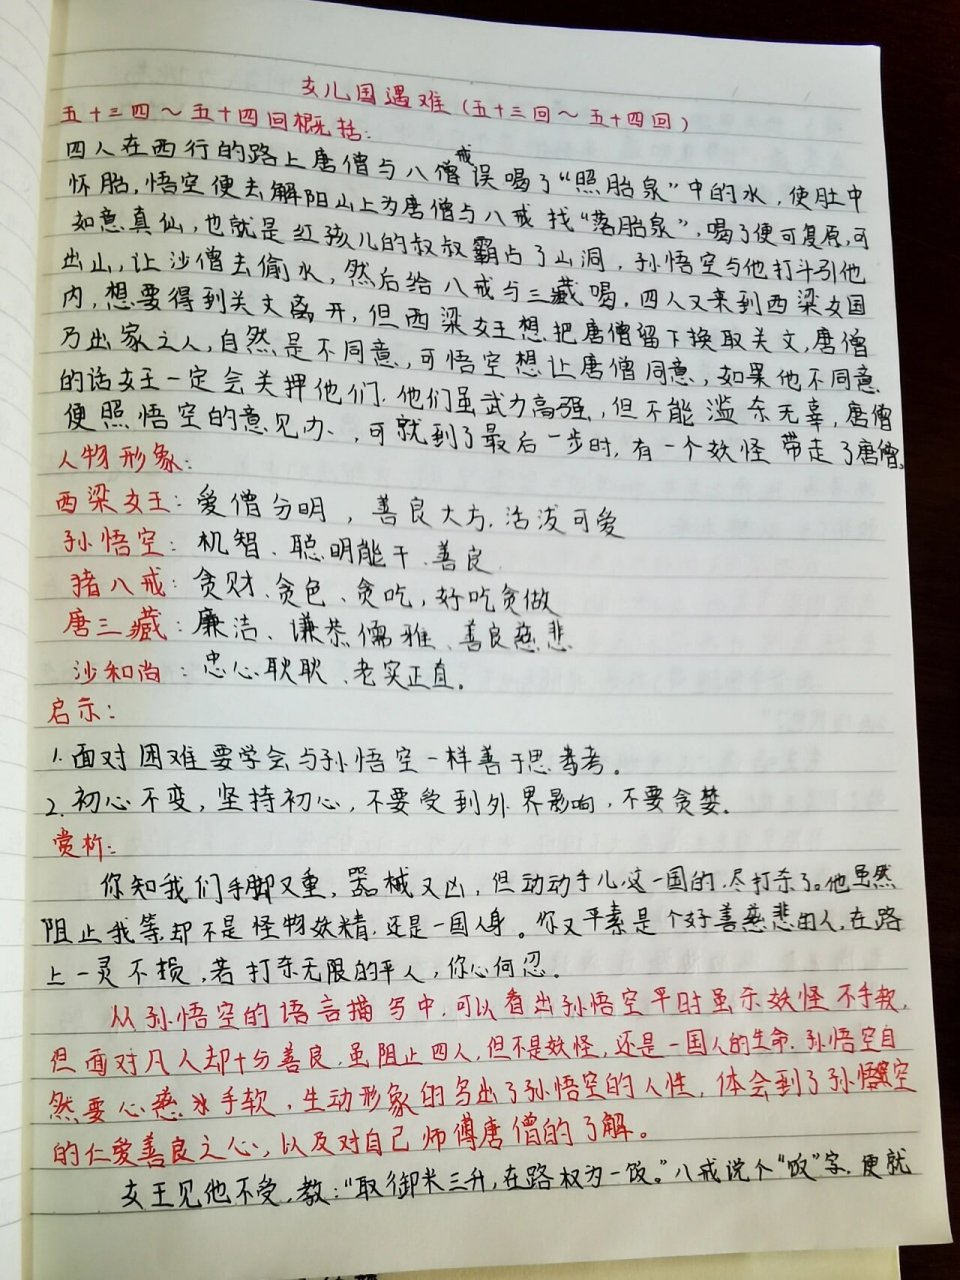 女儿国遇难（五十三回～五十四回）
五十三四～五十四回概括：
四人在西行的路上唐僧与八僧戒误喝了“照胎泉”中的水，使肚中
怀胎，悟空便去解阳山上为唐僧与八戒找“落胎泉”，喝了便可复原，可
如意真仙，也就是红孩儿的叔叔霸占了山洞，孙悟空与他打斗引他
出山，让沙僧去偷水，然后给八戒与三藏喝，四人又来到西梁女国
内，想要得到关文离开，但西梁女王想把唐僧留下换取关文，唐僧
乃出家之人，自然是不同意，可悟空想让唐僧同意，如果他不同意
的话女王一定会关押他们，他们虽武力高强，但不能滥杀无辜，唐僧
便照悟空的意见办、，可就到了最后一步时，有一个妖怪带走了唐僧。
人物形象：
西梁女王：爱僧分明，善良大方，活泼可爱
孙悟空：机智、聪明能干、善良
猪八戒：贪财、贪色、贪吃，好吃贪做
唐三藏：廉洁、谦恭儒雅、善良慈悲
沙和尚：忠心耿耿、老实正直。
启示：
1. 面对困难要学会与孙悟空一样善于思考考。
2. 初心不变，坚持初心，不要受到外界影响，不要贪婪.
赏析：
你知我们手脚又重，器械又凶，但动动手儿，这一国的，尽打杀了。他虽然
阻止我等，却不是怪物妖精，还是一国人身。你又平素是个好善慈悲的人，在路
上一灵不损，若打杀无限的平人，你心何忍.
从孙悟空的语言描写中，可以看出孙悟空平时虽杀妖怪不手软，
但面对凡人却十分善良，虽阻止四人，但不是妖怪，还是一国人的生命，孙悟空自
然要心慈手软，生动形象的写出了孙悟空的人性，体会到了孙悟空
的仁爱善良之心，以及对自己师傅唐僧的了解。
女王见他不受，教：“取御米三升，在路权为一饭。”八戒说个“饭”字，便就